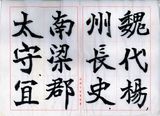 魏代楊
州長史
南梁郡
太守宜